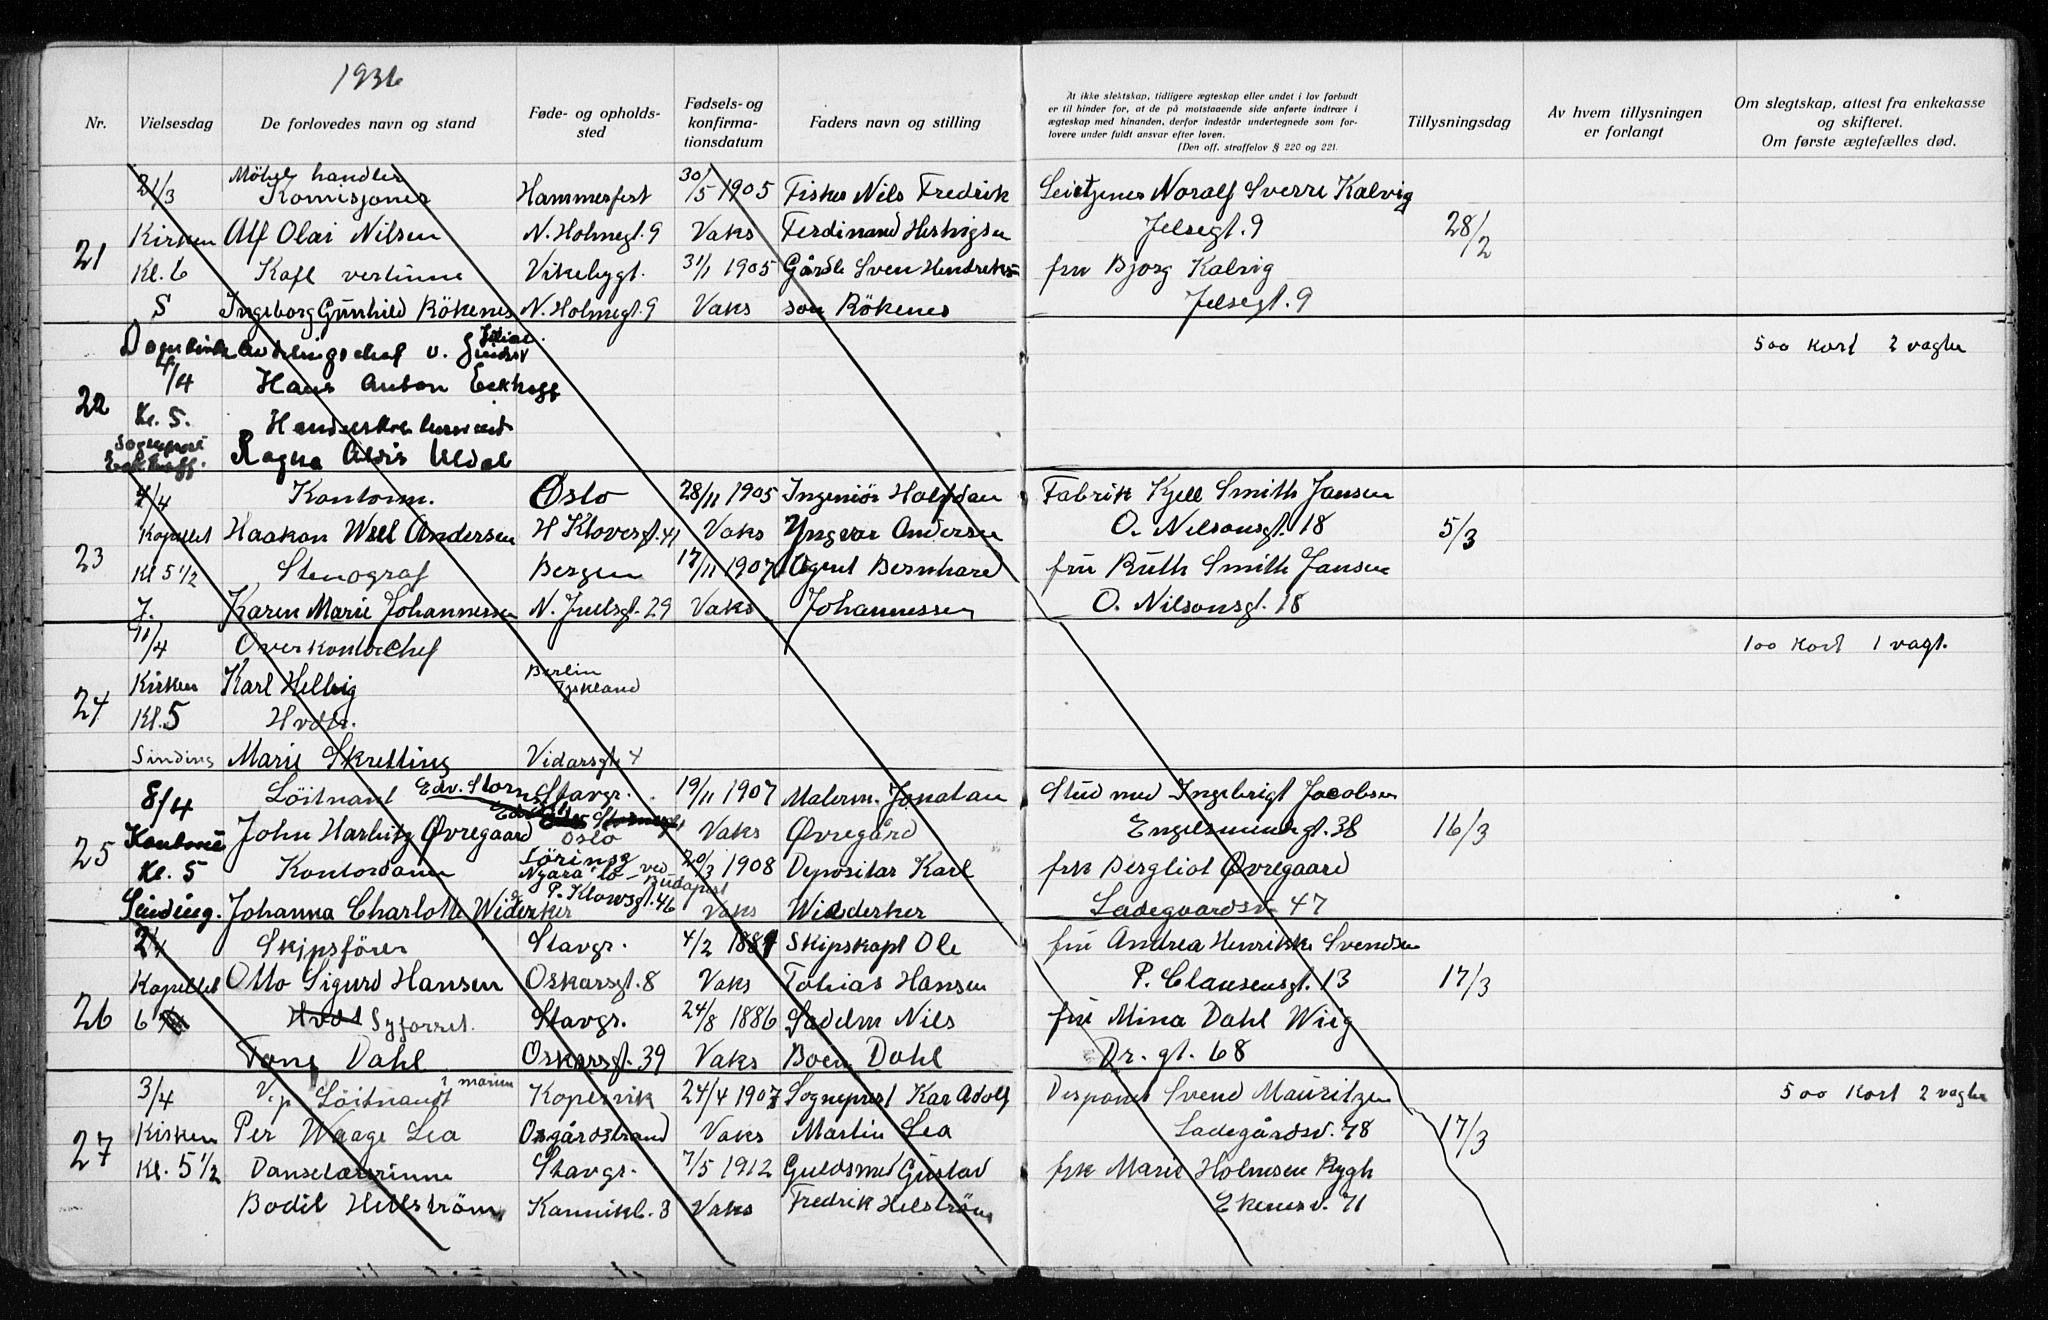 1936
Nr.
Vielsesdag
De forlovedes navn og stand
Føde- og opholds-
sted
Fødsels- og
konfirma-
tionsdatum
Faders navn og stilling
At ikke slektskap, tidligere ægteskap eller undet i lov forbudt
er til hinder for, at de på motstaaende side anførte indtrær i
ægteskap med hinanden, derfor indestår undertegnede som for-
lovere under fuldt ansvar efter loven.
(Den off. straffelov § 220 og 221.
Tillysningsdag
Av hvem tillysningen
er forlangt
Om slegtskap, attest fra enkekasse
og skifteret.
Om første ægtefælles død.
Möbel handler
21/3 Komisjonær Hammerfest 30/5 1905 Fisker Nils Fredrik Noralf Sverre Kalvig
21 Kirken Alf Olai Nilsen N. Holmegt. 9 Vaks Ferdinand Jelsegt. 9 28/2
Kl. 6 Kafé vertinne Vikebygt. 31/1 1905 Gårdb Sven Hendrik fru Bjorg Kalvig
S Ingeborg Gunhild Rökenes N. Holmegt. 9 Vaks son Rökenes Jelsegt. 9
Domkirk avdelingschef v. 500 kort 2 vagter
/4 Hans Anton Eckhoff
22 Kl. 5.
Sogneprest
Eckhoff. Ragna Aldis Uldal
4/4 Kontorm. Oslo 28/11 1905 Ingeniör Halfdan Fabrik Kjell Smith Jansen
Kapellet Haakon Andersen H Klovesgt. 41 Vaks Yngvar Andersen O. Nilsonsgt. 18 5/3
23 Kl 5 1/2 Stenograf Bergen 17/11 1907 Agent Bernhard fru Ruth Smith Jansen
J. Karen Marie Johannessen N. Juelsgt. 29 Vaks Johannessen O. Nilsonsgt. 18
11/4 Overkontorchef 100 kort 1 vagt.
Kirken Karl Helbig Berlin
Tyskland
24 Kl. 5 Hvdtr.
Sinding Marie Skretting Vidarsgt 4
8/4 Löitnant Edv. Storms Stavgr. 19/11 1907 Malerm. Jonatan Stud med Ingebrigt Jacobsen
John Harbitz Øvregaard Oslo Vaks Øvregård Engelsmindegt. 38 16/3
25 Kl. 5 Kontordame 20/3 1908 Depositar Karl frk Bergliot Øvregaard
ved Budapest
P. Klowsgt. 46
Sinding. Johanna Charlotte Widerker Vaks Widderker Ladegaardsv 47
2/4 Skipsförer Stavgr. 4/2 1887 Skipskapt Ole fru Andrea Henrikke Svendsen
Kapellet Otto Sigurd Hansen Oskarsgt. 8 Vaks Tobias Hansen P. Clausensgt. 13 17/3
26 6 Hvdt Syforret. Stavgr. 24/8 1886 Sadelm Nils fru Mina Dahl Wiig
Tone Dahl Oskarsgt. 39 Vaks Boen Dahl Dr. gt. 68
3/4 V.p Löitnant i marinen Kopervik 24/4 1907 Sogneprest Kar Adolf Disponent Svend Mauritzen 500 kort 2 vagter
27 Kirken Per Waage Lea Osgårdstrand Vaks Martin Lea Ladegårdsv. 78 17/3
Kl. 5 1/2 Danselærinne Stavgr. 7/5 1912 Guldsmed Gustav frk Marie Holmsen Rygh
Bodil Hellström Kannikb. 3 Vaks Fredrik Helström Ekenesv. 71